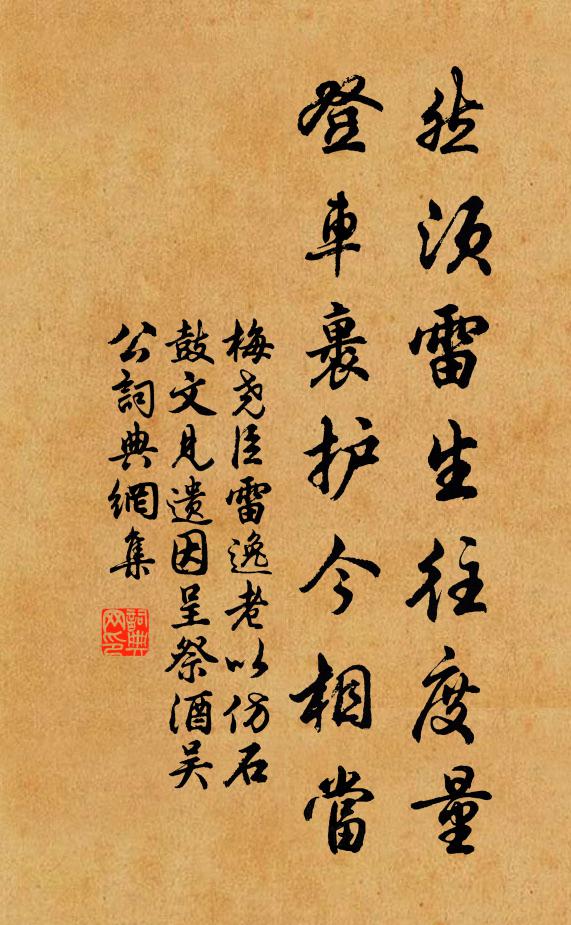 然须雷生往度量
登車裹护今相當
梅尧臣雷逸老以仿石
鼓文見遗因呈祭酒吴
公詞典網集
詞典
网印